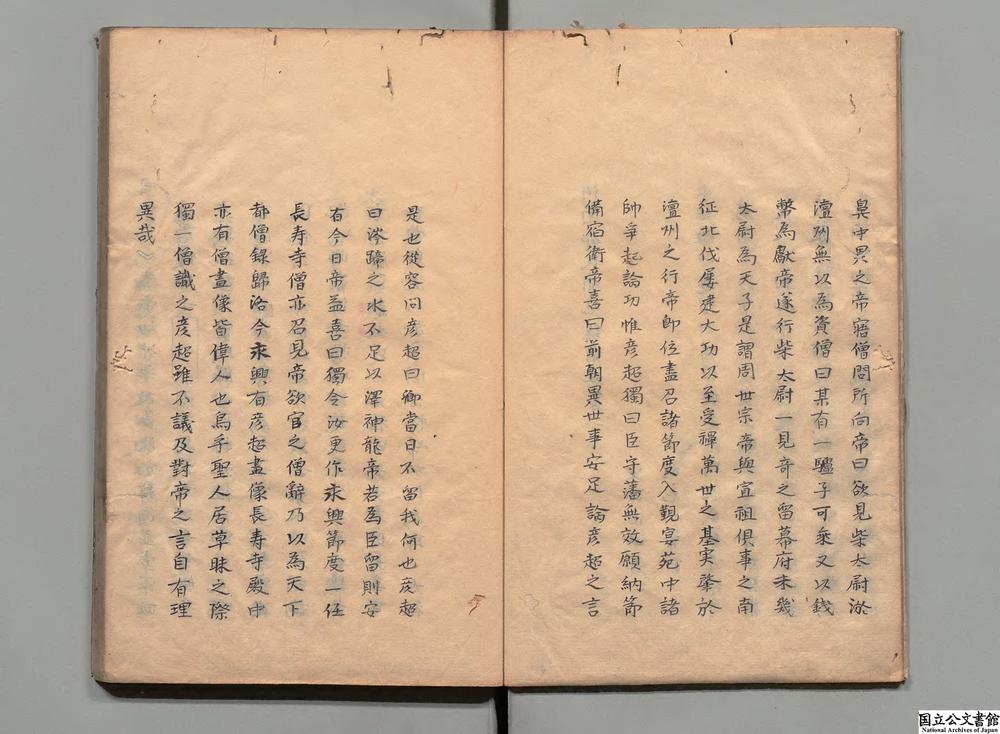 臭中異之帝寤僧問所向帝曰欲見柴太尉於
澶州無以為資僧曰某有一驢子可乘又以錢
幣為獻帝遂行柴太尉一見竒之留幕府未幾
太尉為天子是謂周世宗帝與宣祖俱事之南
征北伐屢建大功以至受禪萬世之基実肇於
澶州之行帝即位盡召諸節度入覲宴苑中諸
帥爭起論功惟彦超獨曰臣守藩無效願納節
備宿衛帝喜曰前朝異世事安足論彦超之言
是也從容问彦超曰卿當日不留我何也彦超
曰涔蹄之水不足以澤神龍帝若為臣留則安
有今日帝益喜曰獨令汝更作永興節度一任
長寿寺僧亦召見帝欲官之僧辭乃以為天下
都僧錄歸洛今永興有彦超畫像長寿寺殿中
亦有僧畫像皆偉人也烏乎聖人居草昧之際
獨一僧識之彦超雖不議及對帝之言自有理
異哉
国立公文書館
National Archives of Japan